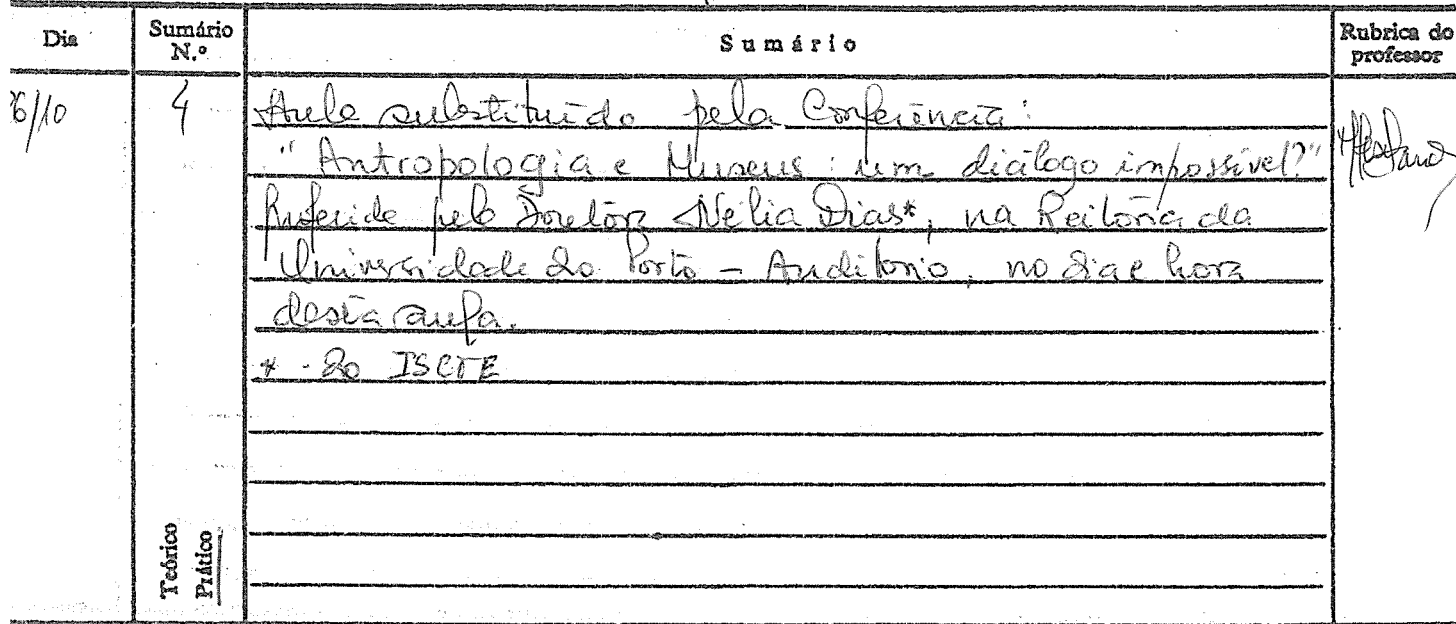 Dia Sumário N.º Sumário Rubrica do professor
26/10 4 Aula substituída pela Conferência:
"Antropologia e Museus: um diálogo impossível?"
Proferida pela Doutora Nélia Dias*, na Reitoria da
Universidade do Porto - Auditório, no dia e hora
desta aula.
* - do ISCTE
Teórico
Prático